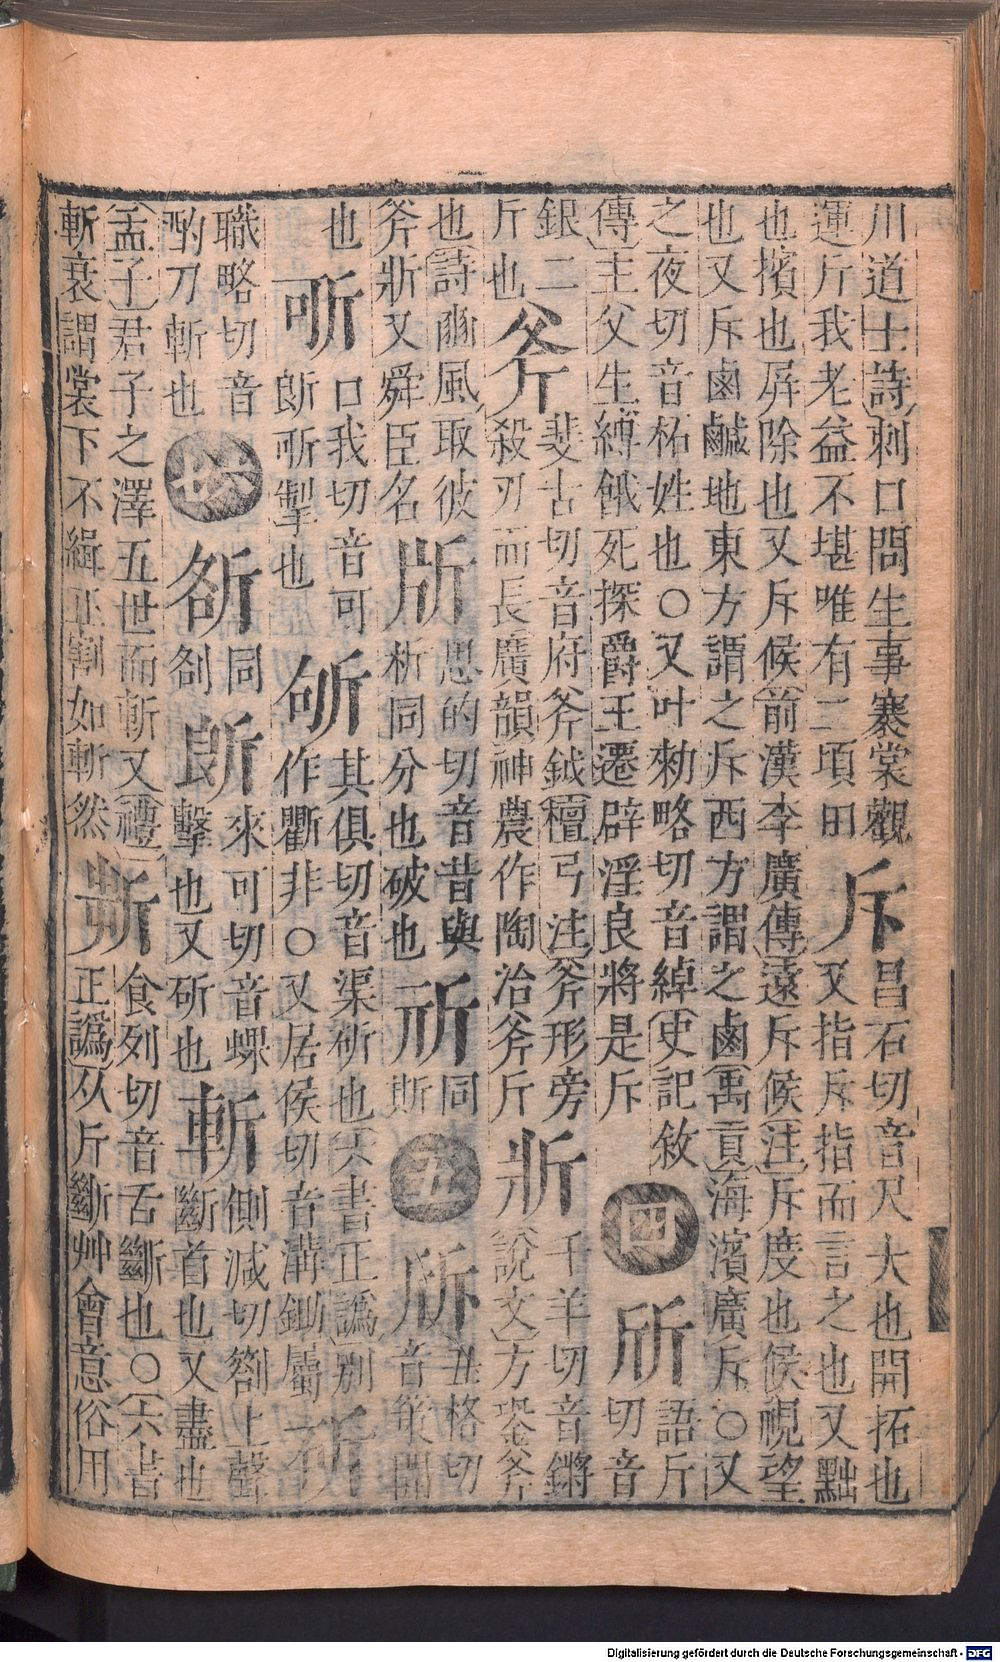 川道士詩刺口問生事褰裳觀
運斤我老益不堪唯有二頃田
斥
昌石切音尺大也開拓也
又指斥指而言之也又黜
也擯也屏除也又斥候前漢李廣傳遠斥候注斥度也候視望
也又斥鹵鹹地東方謂之斥西方謂之鹵禹貢海濱廣斥○又
之夜切音柘姓也○又叶勑略切音綽史記敘
傳主父生縛餓死探爵王遷辟淫良將是斥
四
斦
語斤切音
銀二斤也
斧
斐古切音府斧鉞檀弓注斧形旁
殺刃而長廣韻神農作陶冶斧斤
斨
千羊切音鏘
說文方銎斧
也詩豳風取彼斧斨又舜臣名
思的切音昔與
析同分也破也
同
斯
五
丑格切
音策開
也
口我切音可
斫掣也
其俱切音渠斫也六書正譌別
作斸非○又居侯切音溝鋤屬
職略切音酌刀斬也
同
來可切音蠃
擊也又斫也
斬
側減切劖上聲
斷首也又盡也
孟子君子之澤五世而斬又禮
斬衰謂裳下不緝正割如斬然
食列切音舌斷也○六書
正譌从斤斷艸會意俗用
Digitalisierung gefördert durch die Deutsche Forschungsgemeinschaft - DFG